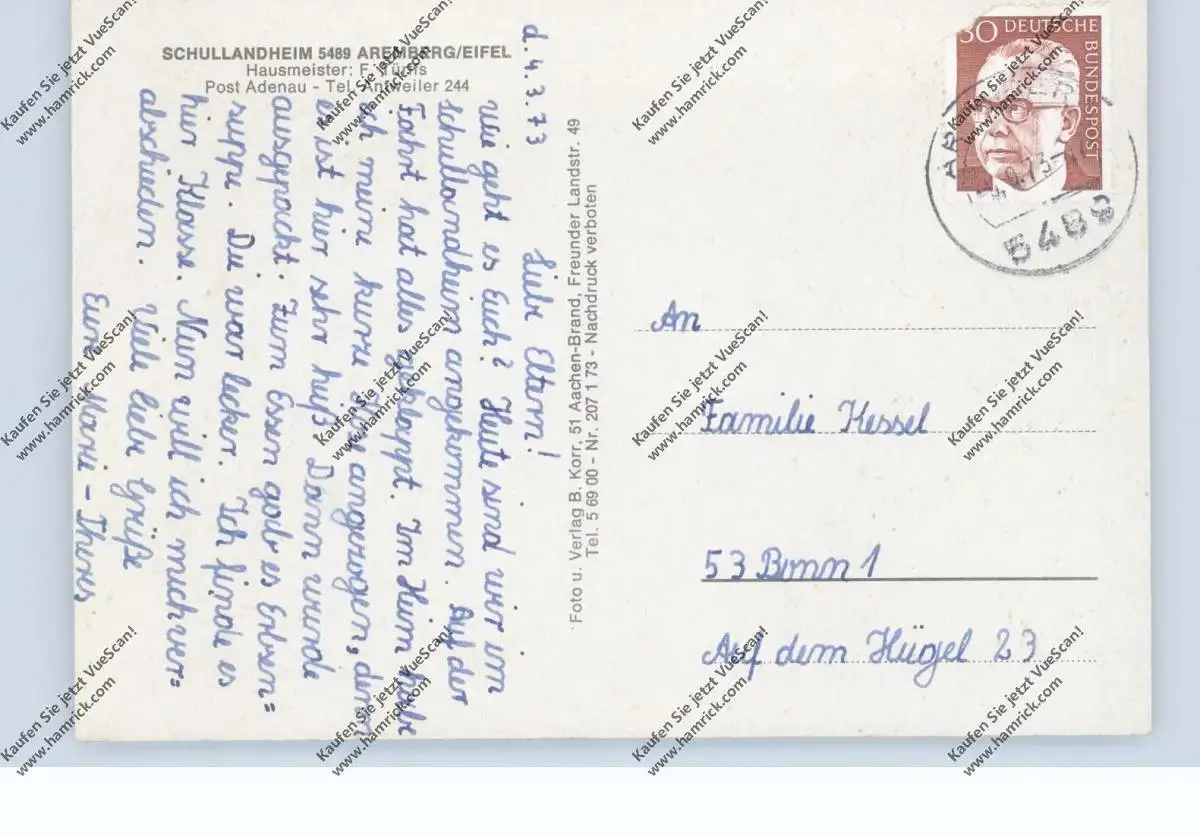 SCHULLANDHEIM 5489 AREMBERG/EIFEL
Hausmeister: F. Türfis
Post Adenau - Tel. Antweiler 244
d. 4.3.73
Liebe Eltern!
wie geht es Euch? Heute sind wir im
schullandheim angekommen. Auf der
Fahrt hat alles geklappt. Im Heim habe
ich meine kurze angezogen, denn
es ist hier sehr heiß. Dann wurde
ausgepackt. Zum Essen gab es Erbsen=
suppe. Die war lecker. Ich finde es
hier Klasse. Nun will ich mich ver=
abschieden.
Viele liebe Grüße
Eure Marie-Theres
Foto u. Verlag B. Korr, 51 Aachen-Brand, Freunder Landstr. 49
Tel. 5 69 00 - Nr. 207 1 73 - Nachdruck verboten
30 DEUTSCHE
BUNDESPOST
5489
An
Familie Kessel
53 Bonn 1
Auf dem Hügel 23
Kaufen Sie jetzt VueScan!
www.hamrick.com